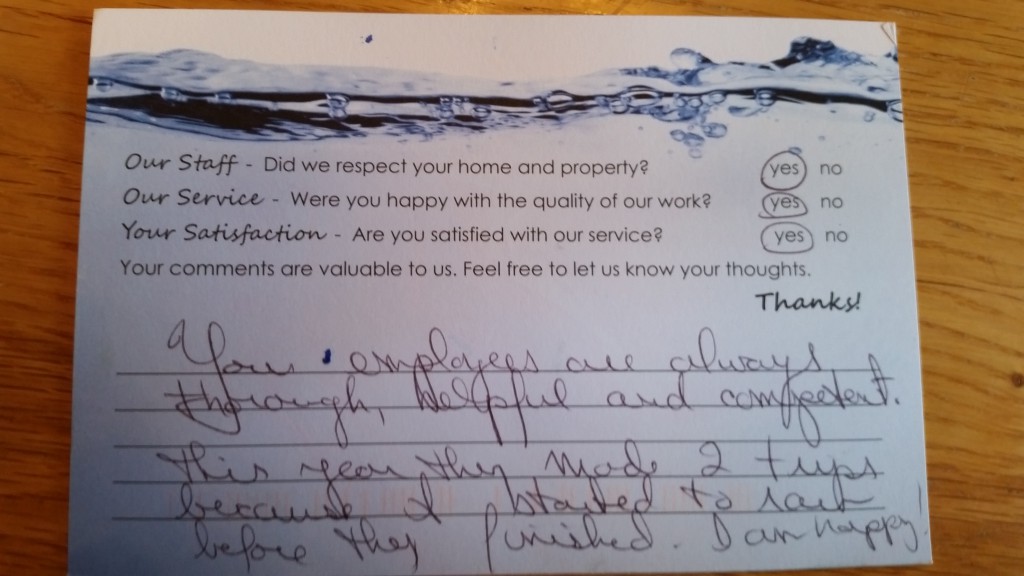 Our Staff - Did we respect your home and property? yes no
Our Service - Were you happy with the quality of our work? yes no
Your Satisfaction - Are you satisfied with our service? yes no
Your comments are valuable to us. Feel free to let us know your thoughts.
Thanks!
Your employees are always
thorough, helpful and competent.
This year they made 2 trips
because I started to rain
before they finished. I am happy!